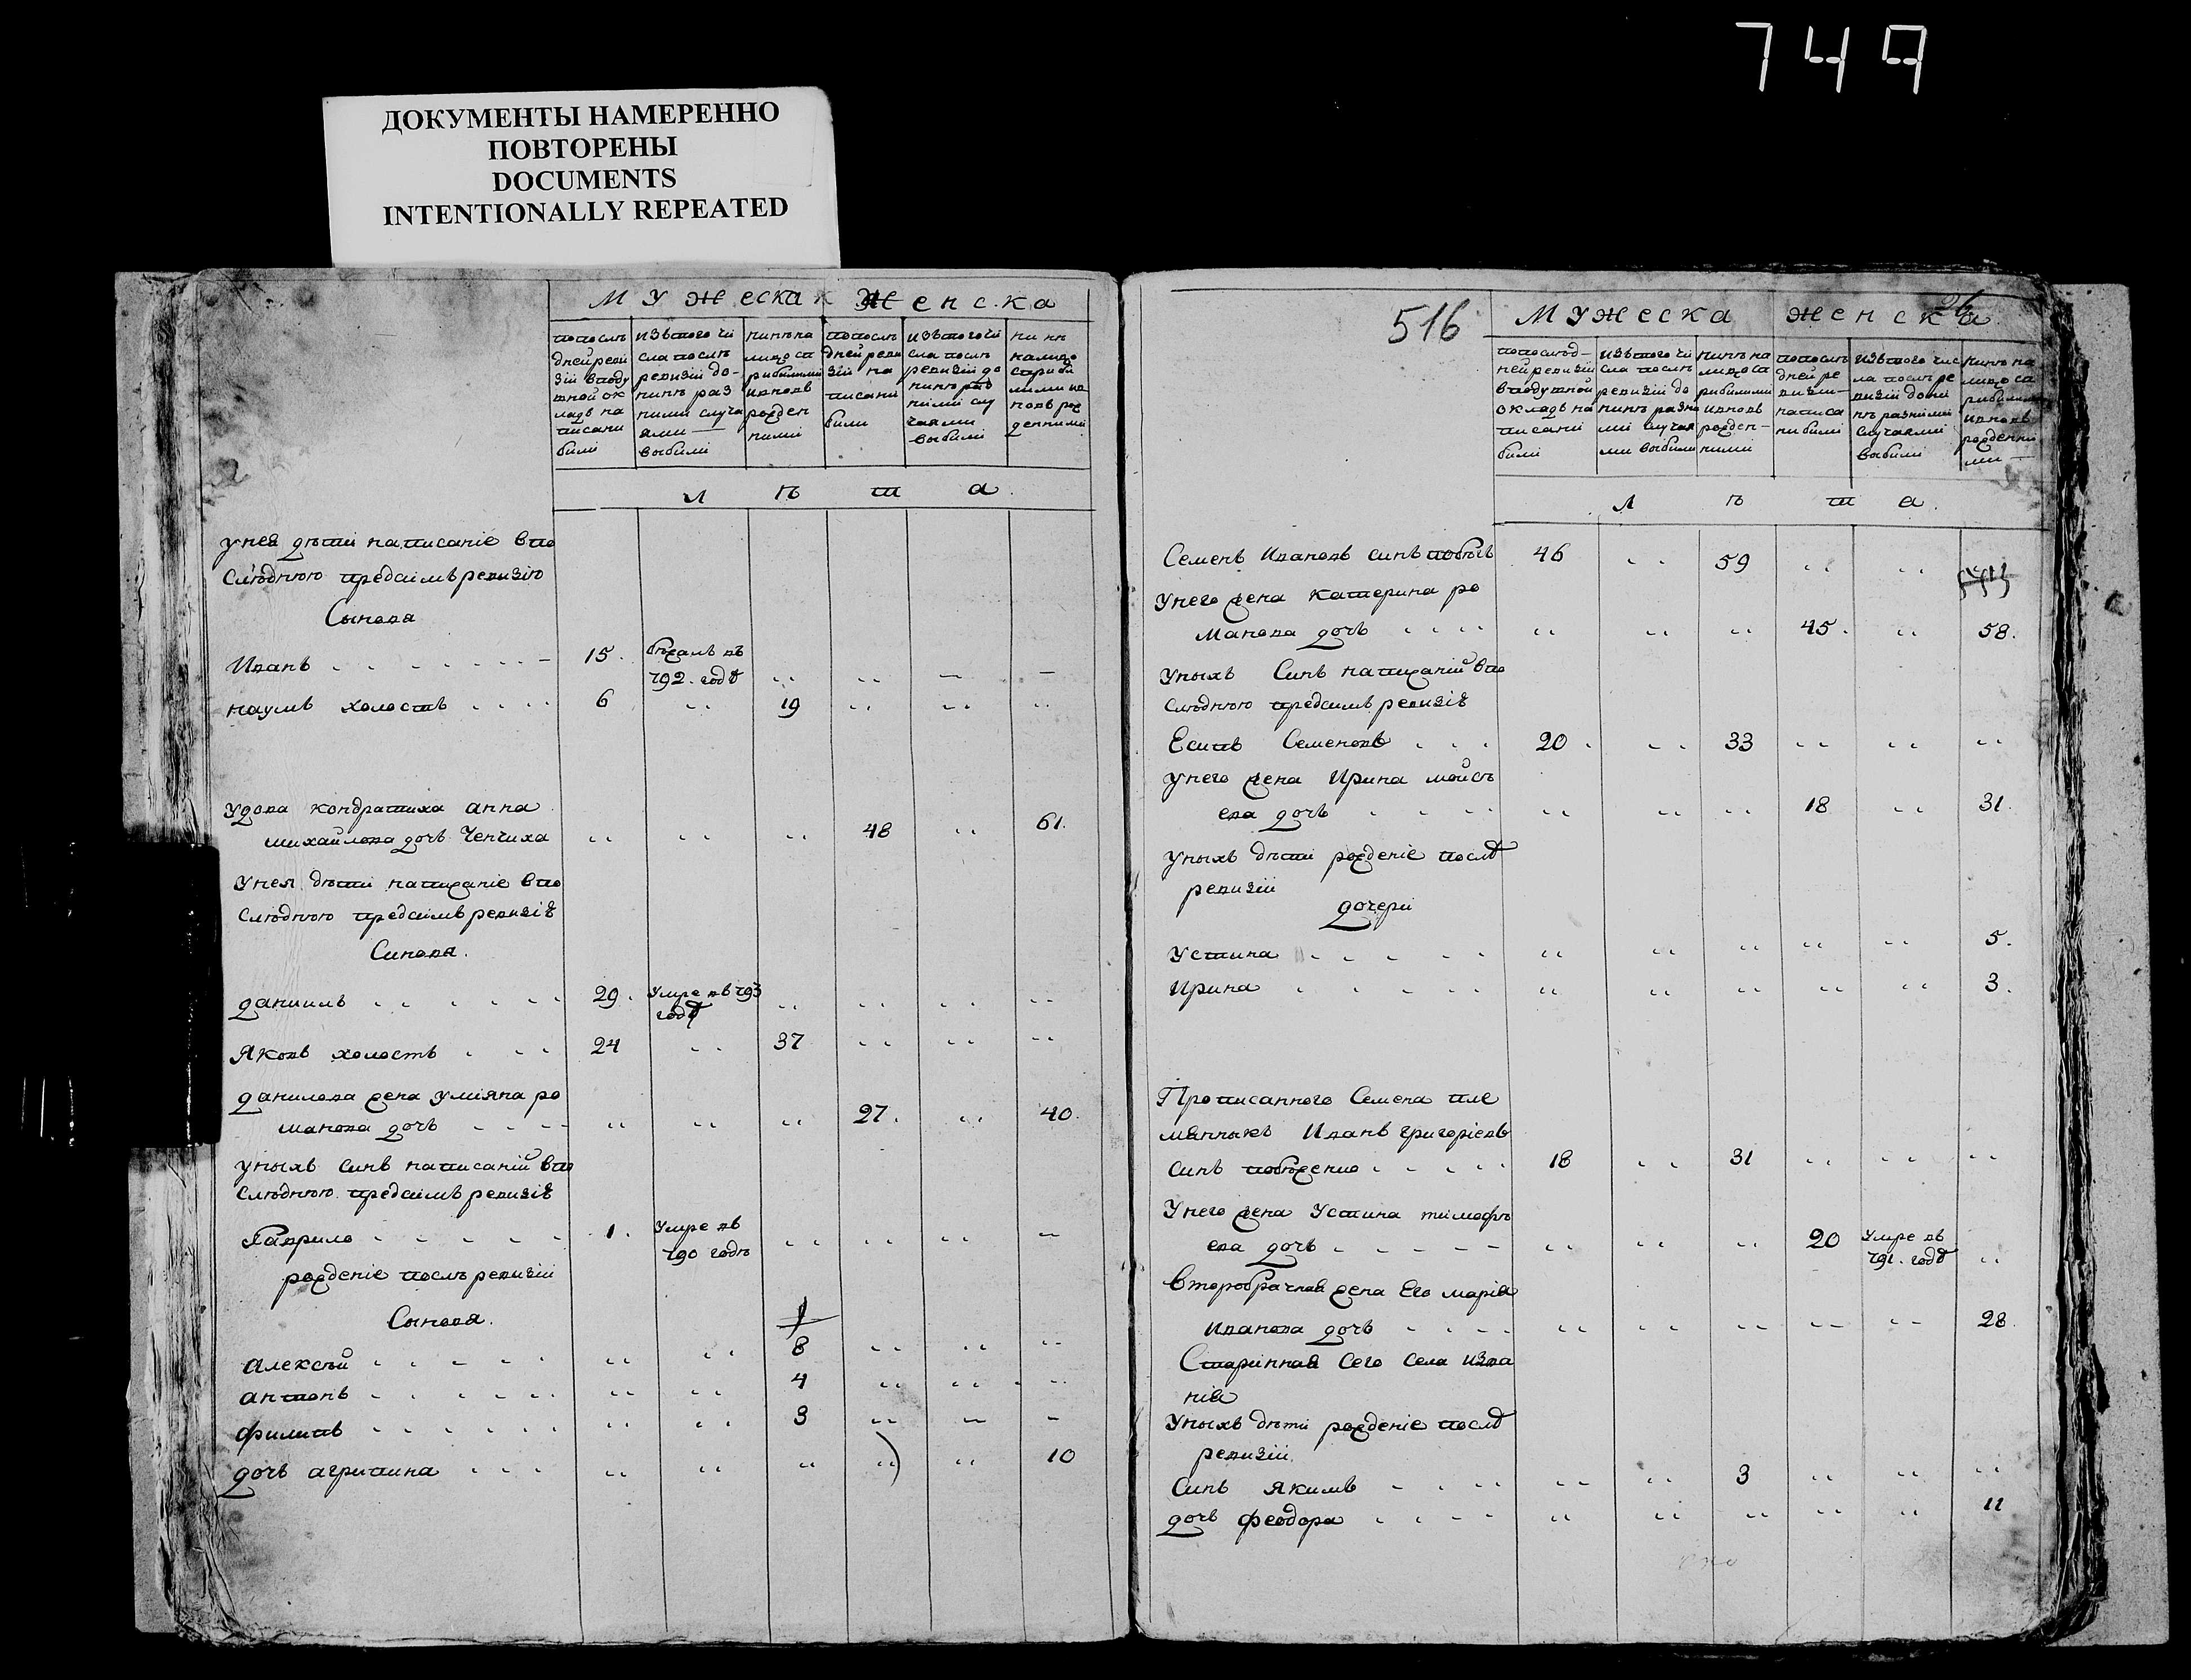 749
ДОКУМЕНТЫ НАМЕРЕННО
ПОВТОРЕНЫ
DOCUMENTS
INTENTIONALLY REPEATED
Мужеска Женска
попослѣ
дней реви
зіи вподу
шной ок
ладъ на
писани
были
изътого чи
сла послѣ
ревизіи до-
нинѣ раз
ними случа
ями —
выбыли
нинѣ на
лицо съ
прибылими
ивновь
рожден
ними
попослѣ
дней реви
зіи на
писани
были
изътого чи
сла послѣ
ревизіи до
нинѣ раз
ними слу
чаями
выбыли
ни нѣ
налицо
съприби
лими ив
новь рож
денними
л ѣ т а.
унея дѣти написаніе впо
слѣднюю предсимъ ревизію
Сынова
Иванъ 15. бѣжалъ въ
792. годѣ
наумъ холостъ 6 19
Удова кондратиха анна
михайлова дочь Ченчиха 48 61.
Унея дѣти написаніе впо
слѣднюю предсимъ ревизіѣ
Синова.
даниилъ 29. Умре въ 793
годѣ
Яковъ холостъ 24 37
данилова жена Умліяна ро
манова дочь 27. 40.
уныхъ синъ написаній впо
слѣднюю предсимъ ревизіѣ
Гаврило 1. Умре въ
790 годѣ
рожденіе послѣ ревизіи
Сынова.
алексѣй 8
антонъ 4
филипъ 3
дочь агрипина 10
516
26
Мужеска Женска
попослѣд-
ней ревизіи
вподушной
окладъ на
писани
были
изътого чи
сла послѣ
ревизіи до
нинѣ разни
ми случая
ми выбыли
нинѣ на
лицо съ
прибылими
ивновь
рожден-
ними
попослѣ
дней ре
визіи—
написа
ни были
изътого чис
ла послѣ ре
визіи дони
нѣ разними
случаями
выбыли
нинѣ на
лицо съ
прибылими
ивновь
рожденни
ми —
л ѣ т а.
Семенъ Ивановъ синъ побѣгъ 46 59
Унего жена катерина ро
манова дочь 45. 58.
Уныхъ Синъ написаній впо
слѣднюю предсимъ ревизіѣ
Есипъ Семеновъ 20 33
Унего жена Ирина мойсѣ
ева дочь 18 31.
Уныхъ дѣти рожденіе послѣ
ревизіи
дочери
Устина 5.
Ирина 3.
Прописанного Семена пле
мянныкъ Иванъ григоріевъ
синъ 18 31
Унего жена Устина тимофѣ
ева дочь 20 Умре въ
791. годѣ
Второбрачная жена Его марія
Иванова дочь 28
Старинная Сего Села Ива
нія
Уныхъ дѣти рожденіе послѣ
ревизіи.
Синъ якимъ 3
дочь феодора 11